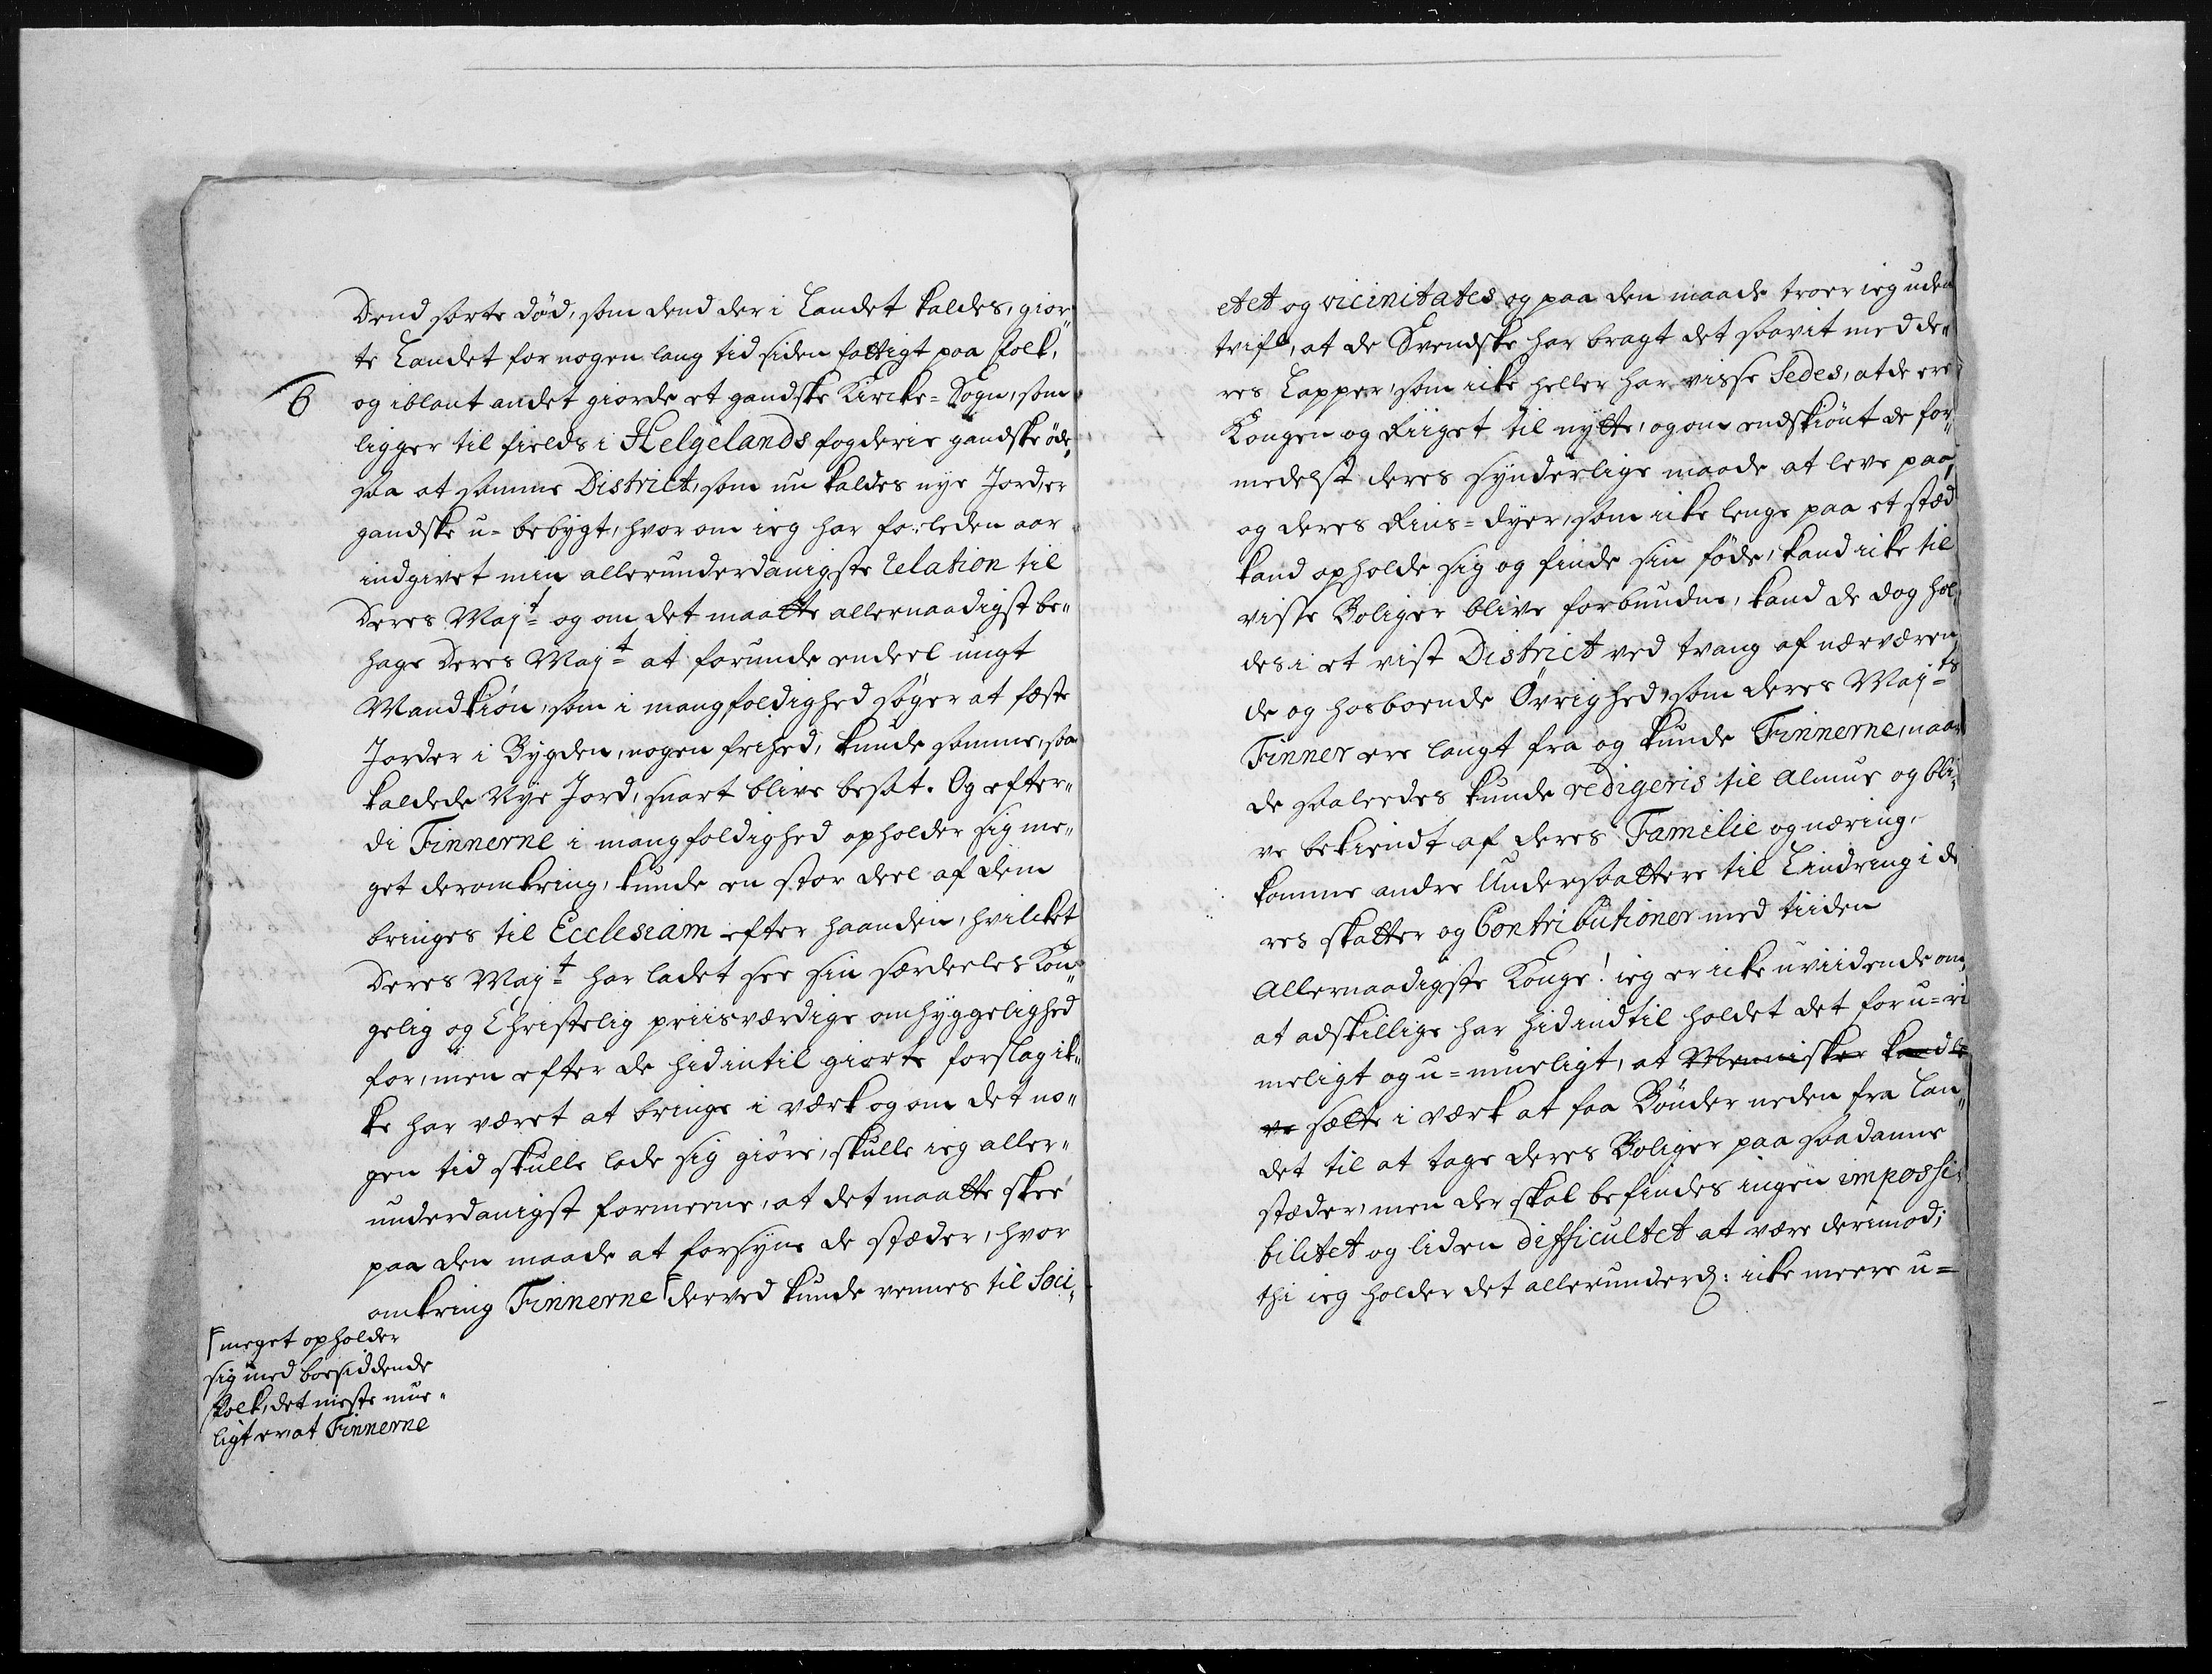 Dend sorte død, som dend der i Landet kaldes, gior„
te Landet for nogen lang tid siden fattigt paa folk,
6
og iblant andet giorde et gandske Kircke=Sogn, som
ligger til fields i Helgelands fogderie gandske øde,
saa at samme District, som nu kaldes nye Jord, er
gandske u=bebygt, hvor om ieg har forleden aar
indgivet min allerunderdanigste relation til
Deres Majt og om det maatte allernaadigst be„
hage Deres Majt at forunde endeel ungt
Mandkiøn, som i mangfoldighed søger at fæste
Jorder i Bygden, nogen frihed, kunde samme, saa
kaldede Nye Jord, snart blive besat. Og efter„
di Finnerne i mangfoldighed opholder sig me„
get deromkring, kunde en stor deel af dem
bringes til Ecclesiam efter haanden, hvilcket
Deres Majt har ladet see sin særdeeles Kon„
gelig og Christelig priisværdige omhyggelighed
for, men efter de hidintil giorte forslag ik„
ke har været at bringe i værk og om det no„
gen tid skulle lade sig giøre, skulle ieg aller„
underdanigst formeene, at det maatte skee
paa den maade at forsyne de stæder, hvor
omkring Finnerne derved kunde vennes til Soci„
meget opholder
sig med boesiddende
Folk, det meste mue„
ligt er at Finnerne
etet og vicinitates og paa den maade troer ieg uden
tvifl, at de Svendske har bragt det saavit med de„
res Lapper, som icke heller har visse Sedes, at de ere
Kongen og Riiget til nytte, og om endskiønt de for„
medelst deres synderlige maade at leve paa,
og deres Rins=dyer, som icke lenge paa et stæd
kand opholde sig og finde sin føde, kand icke til
visse Boliger blive forbundne, kand de dog hol„
des i et vist District ved tvang af nærværen„
de og hosboende Øvrighed, som deres Majts
Finner ere langt fra og kunde Finnerne, naar
de saaleedes kunde redigeris til Almue og bli„
ve bekiendt af deres Familie og næring,
komme andre Undersaattere til Lindring i de
res skatter og Contributioner med tiiden
Allernaadigste Konge! ieg er icke uviidende om,
at adskillige har hidindtil holdet det for u=ri
meligt og u=mueligt, at Mennisker kand le
ve sætte i værk at faa Bønder neden fra Lan„
det til at tage deres Boliger paa saadanne
stæder, men der skal befindes ingen impossi„
bilitet og liden difficultet at være derimod;
thi ieg holder det allerunderd: icke meere u=